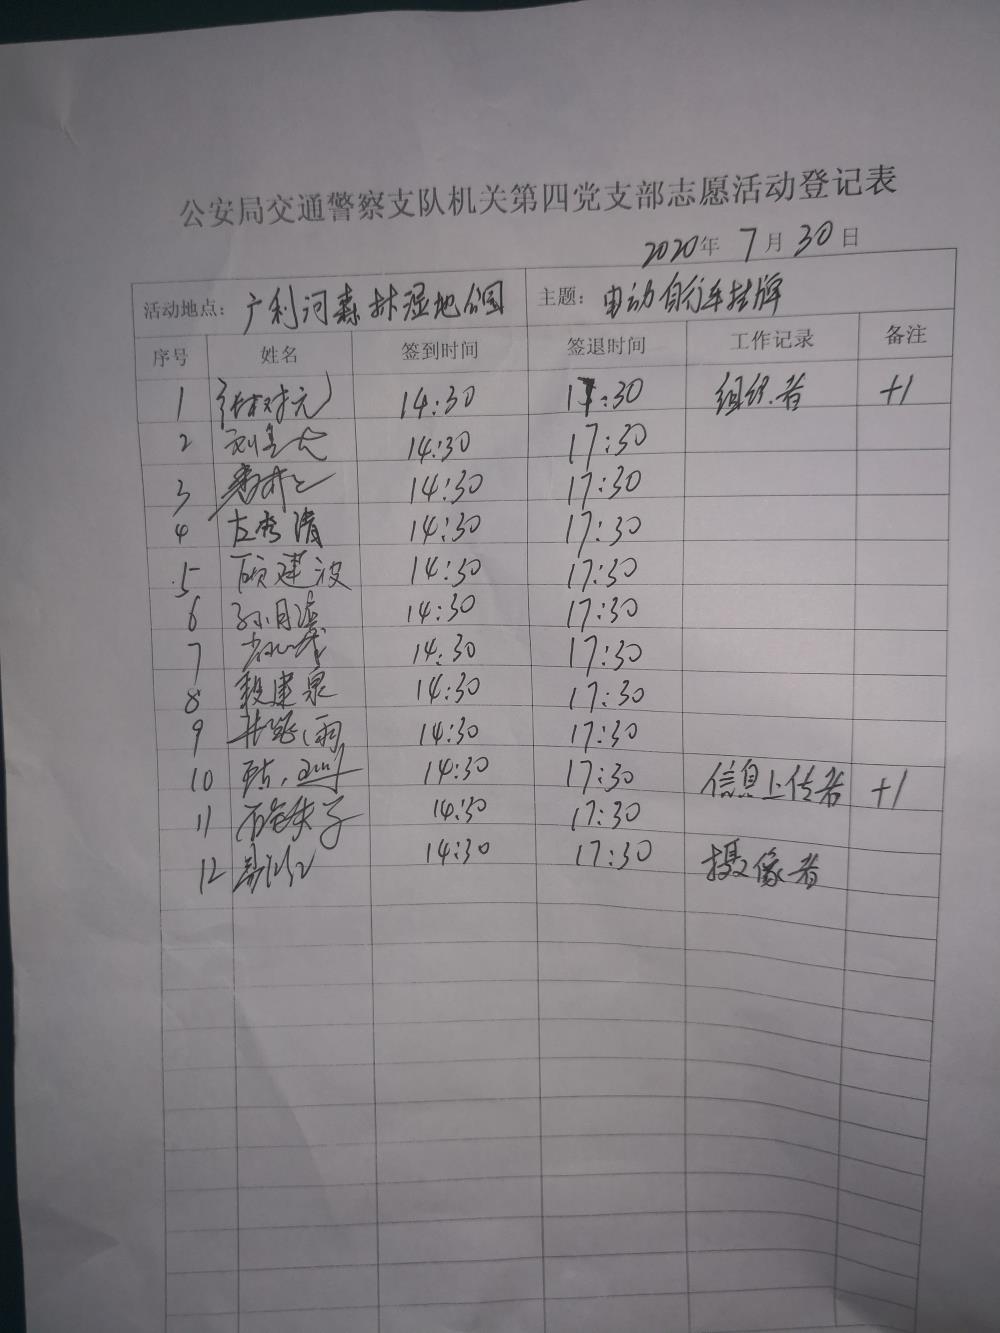 公安局交通警察支队机关第四党支部志愿活动登记表
2020年 7月 30日
活动地点: 广利河森林湿地公园 主题: 电动自行车挂牌
序号 姓名 签到时间 签退时间 工作记录 备注
1 14:30 17:30 组织者 +1
2 14:30 17:30
3 14:30 17:30
4 左秀清 14:30 17:30
5 顾建波 14:30 17:30
6 14:30 17:30
7 14:30 17:30
8 段建泉 14:30 17:30
9 14:30 17:30
10 14:30 17:30 信息上传者 +1
11 14:30 17:30
12 14:30 17:30 摄像者